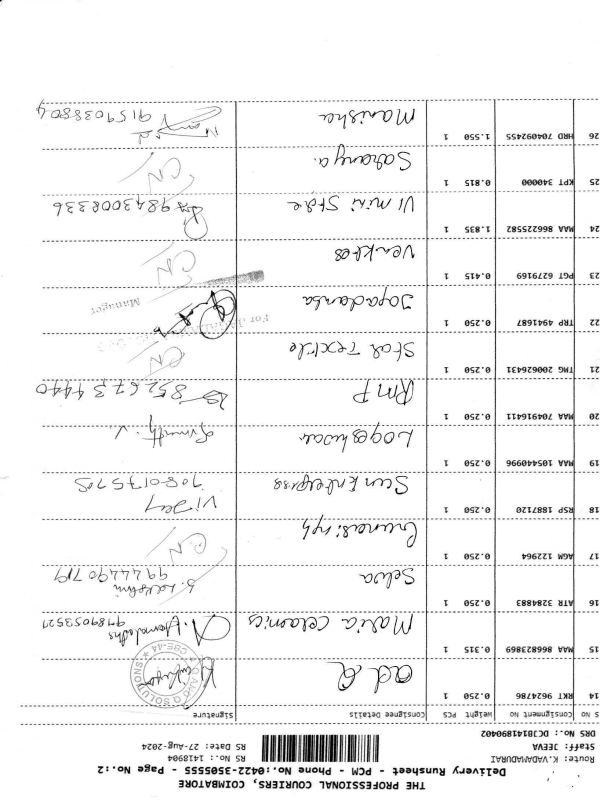 THE PROFESSIONAL COURIERS, COIMBATORE
Delivery Runsheet - PCM - Phone No.:0422-3505555 - Page No.:2
Route: K.VADAMADURAI RS No.: 1418904
Staff: JEEVA RS Date: 27-Aug-2024
DRS No.: DCJB141890402
S NO Consignment NO Weight PCS Consignee Details Signature
14 RKT 9624786 0.250 1 ad.
15 MAA 868823869 0.315 1 Maria Ceramics 9789053521
16 ATR 3284883 0.250 1 Selva S. 9944490719
17 AGM 122964 0.250 1 CN
18 RSP 1887120 0.250 1 Vijay
19 MAA 105440996 0.250 1 Logeshwar
20 MAA 704916411 0.250 1 RMP 8526734440
21 TMG 200620431 0.250 1 Star Textile CN
22 TRP 4941687 0.250 1 For Manager
23 PGT 6279169 0.415 1 CN
24 MAA 866225582 1.835 1 Vi mini Store 9843008336
25 KPT 340000 0.815 1 Saranya. CN
26 HRD 704092455 1.550 1 Manisha 9159038804